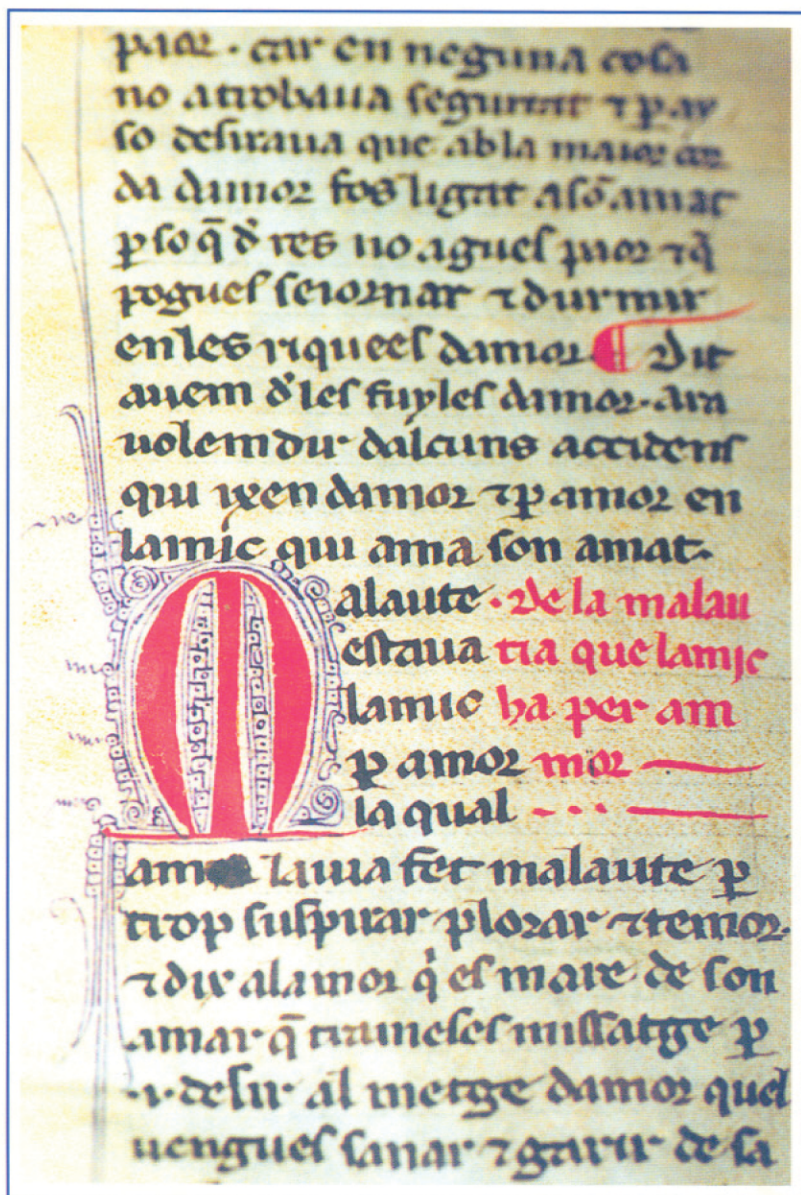 paor · car en neguna cosa
no atrobaua seguretat ⁊ ꝑ ay
so desiraua que ab la maior cor
da damor fos ligat a sō amat
ꝑ so q̄ d̓ res no agues paor ⁊ q̄
pogues seiornar ⁊ durmir
en les riquees damor ¶ Dit
auem d̓ les fuyles damor · ara
uolem dir dalcuns accidens
qui ixen damor ⁊ ꝑ amor en
lamic qui ama son amat·
Malaute · De la malau
estaua tia que lamic
lamic ha per am
ꝑ amor mor
la qual
amor lauia fet malaute ꝑ
trop suspirar plorar ⁊ temor·
⁊ dix a lamor q̇ es mare de son
amar q̄ trameses missatge ꝑ
·i· desir al metge damor quel
uengues sanar ⁊ garir de sa